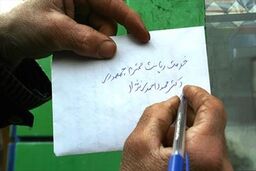 خدمت ریاست محترم جمهوری
دکتر محمود احمدی نژاد